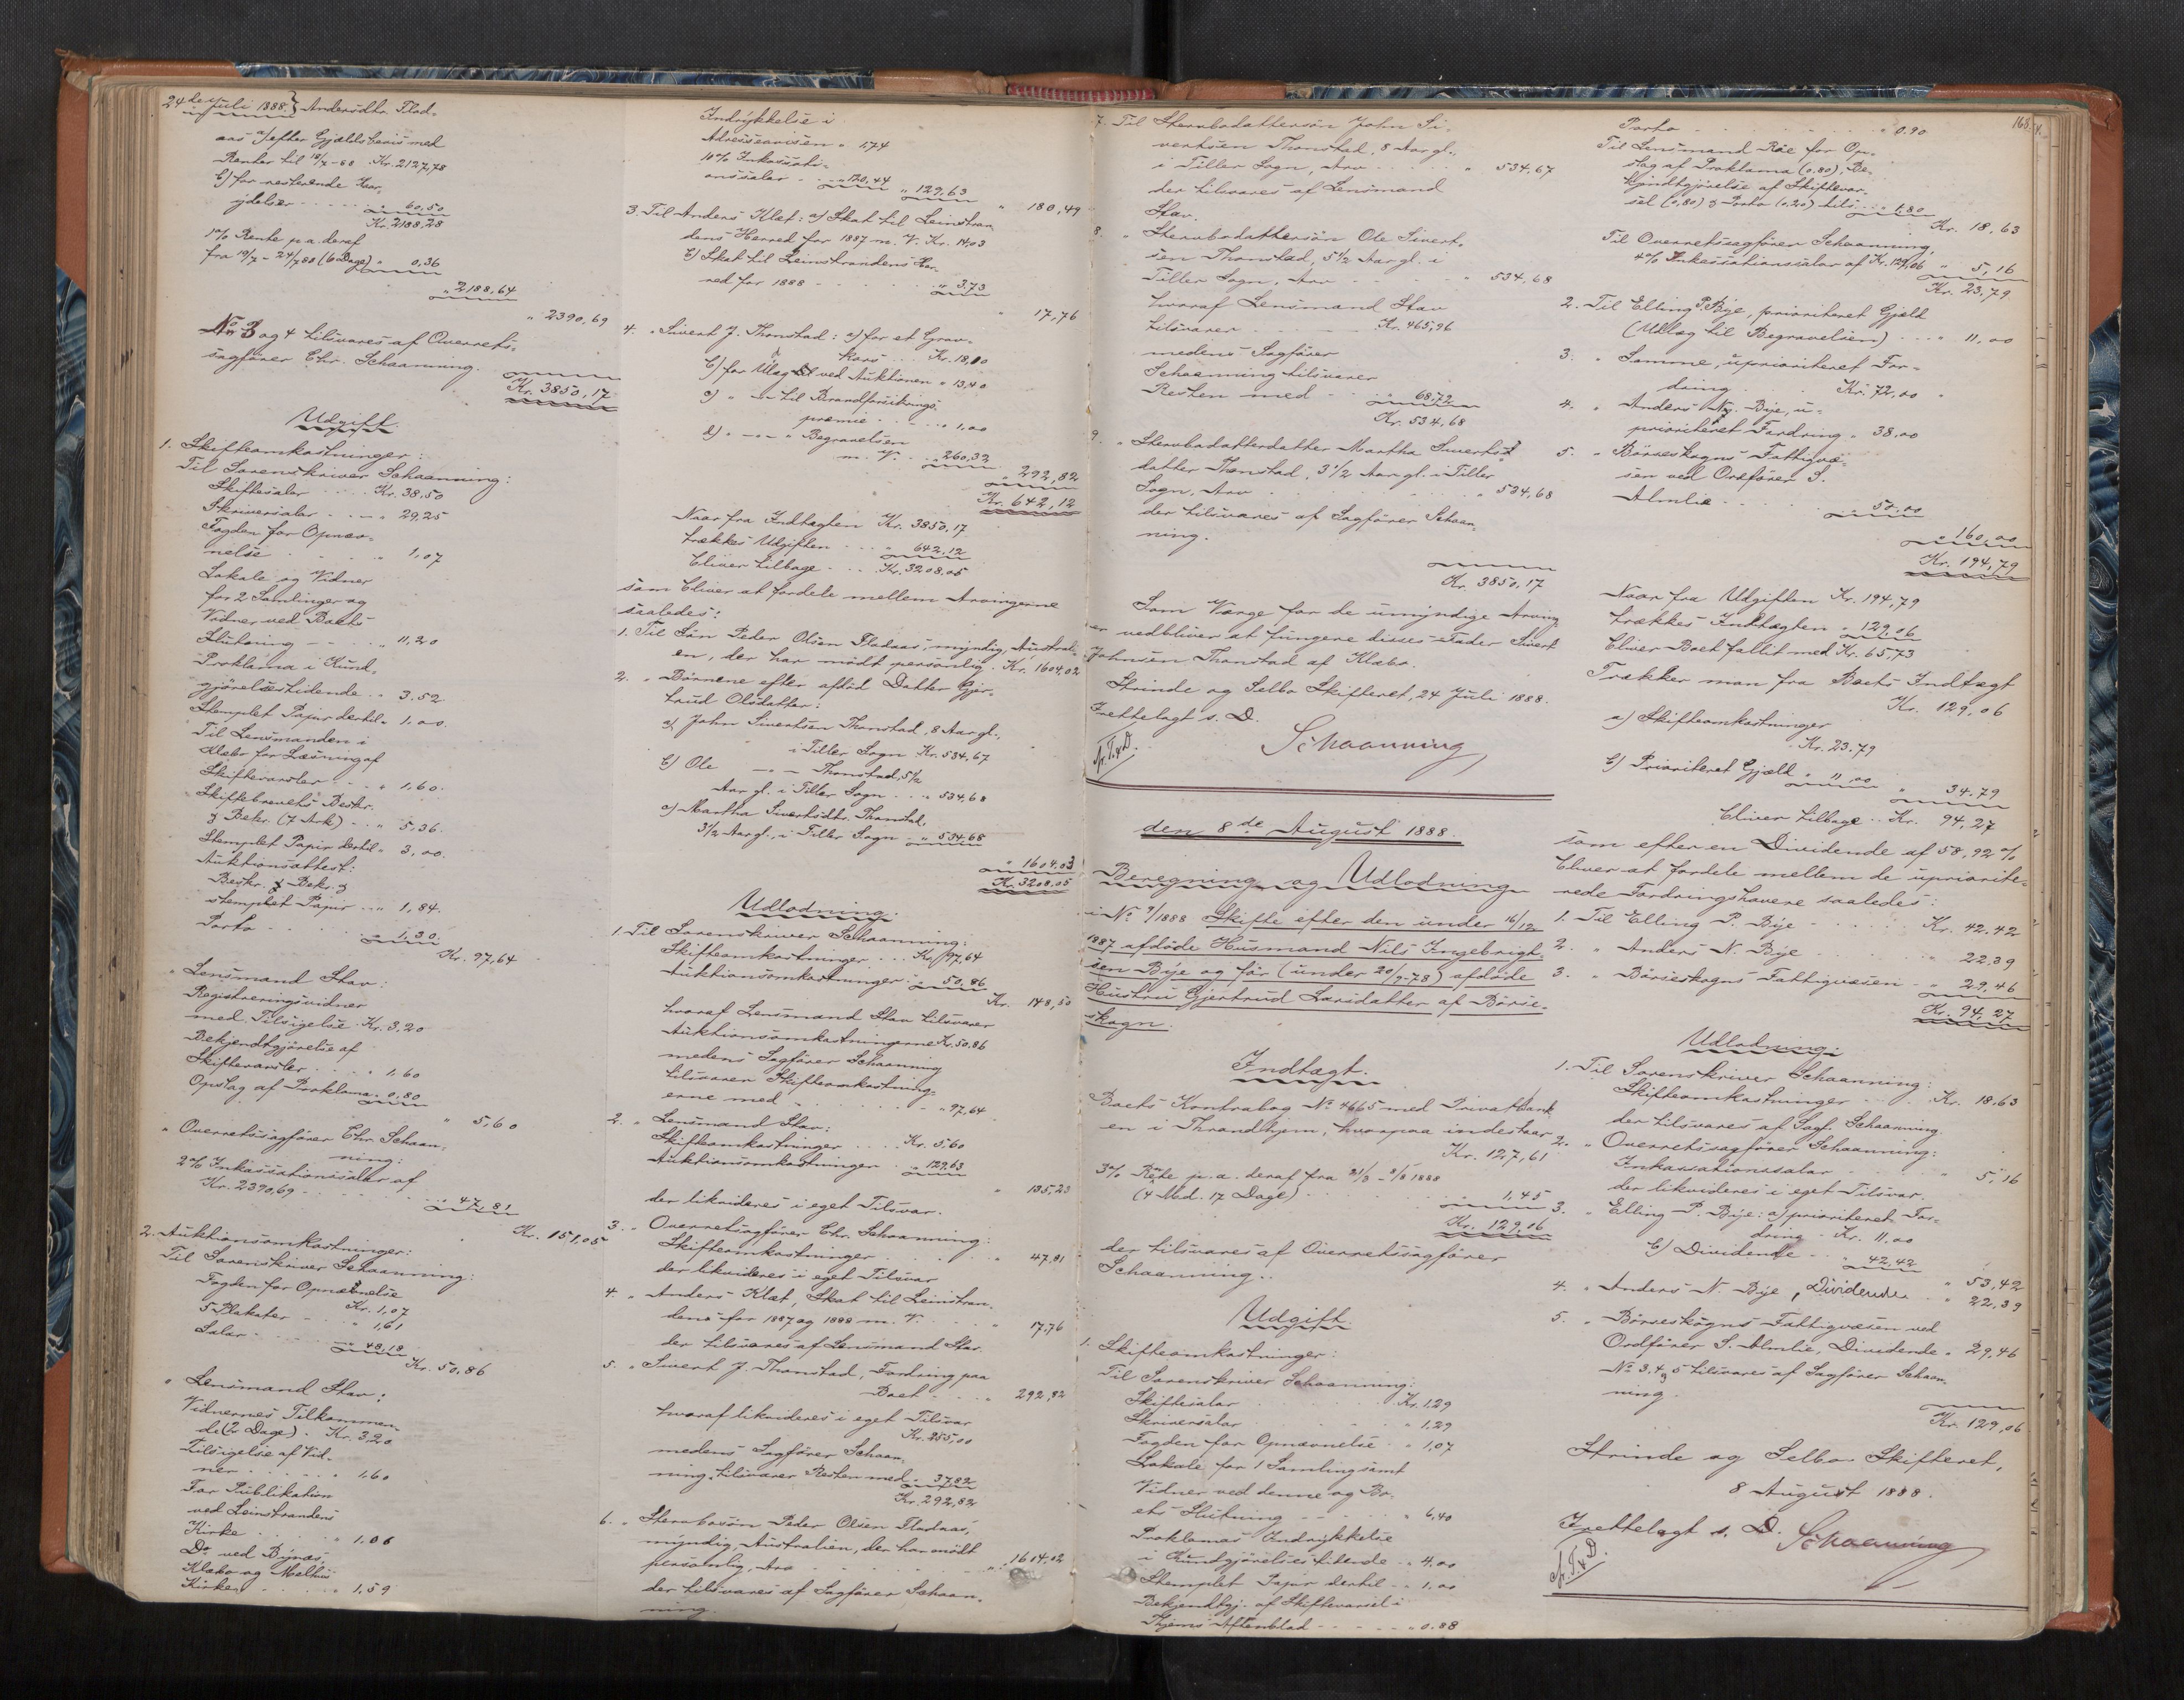 24de Juli 1888. Andersdtr. Flad-
aas a) efter Gjældsbevis med
Renter til 18/7-88 Kr. 2127,78
b) for resterende Kar-
ydelser " 60,50
Kr. 2188,28
1% Rente p. a. deraf
fra 19/7 - 24/7 88 (6 Dage) " 0,36
" 2188,64
" 2390,69
No 3 og 4 tilsvares af Overrets-
sagfører Chr. Schaanning.
Kr. 3850,17.
Udgift.
1. Skifteomkostninger:
Til Sorenskriver Schaanning:
Skiftesalar Kr. 38,50
Skriversalar " 29,25
Fogden for Opnæv-
nelse " 1,07
Lokale og Vidner
for 2 Samlinger og
Vidner ved Boets
Slutning " 11,20
Proklama i Kund-
gjørelsestidende " 3.52
Stemplet Papir dertil " 1.00.
Til Lensmanden i
Klæbo for Læsning af
Skiftevarsler " 1,60.
Skiftebrevets Beskr.
& Bekr. (7 Ark) " 5,36.
Stemplet Papir dertil " 3,00.
Auktionsattest:
Beskr. & Bekr. &
stemplet Papir " 1,84.
Porto " 1,30.
Kr. 97,64
" Lensmand Stav:
Registreringsvidner
med Tilsigelse Kr. 3,20
Bekjendtgjørelse af
Skiftevarsler " 1,60
Opslag af Proklama " 0,80
" 5,60
" Overretssagfører Chr. Schaan-
ning:
2% Inkassationssalar af
Kr. 2390,69 " 47,81
Kr. 151,05
2. Auktionsomkostninger:
Til Sorenskriver Schaanning:
Fogden for Opnævnelse
Kr. 1,07
5 Plakater " 1,61
Salar " 48,18
Kr. 50,86
" Lensmand Stav:
Vidnernes Tilkommen-
de (2 Dage) Kr. 3,20
Tilsigelse af Vid-
ner " 1,60
For Publikation
ved Leinstrandens
Kirke " 1.06
Do ved Bynæs,
Klæbo og Melhus
Kirker " 1.59
Indrykkelse i
Adresseavisen " 1,74
10% Inkassati-
onssalar " 120,44
" 129,63
" 180,49
3. Til Anders Klæt: a) Skat til Leinstran-
dens Herred for 1887 m. V. Kr. 14,03
b) Skat til Leinstrandens Her-
red for 1888 " 3.73
" 17,76
4. " Sivert J. Thonstad: a) for et Grav-
kors Kr. 18,00
b) for Ulæg ved Auktionen " 13,40
c) " -"- til Brandforsikrings-
præmie " 1,00
d) " -"- " Begravelsen
m. V. " 260,32
" 292,82
Kr. 642,12
Naar fra Indtægten Kr. 3850,17
trækkes Udgiften " 642,12
bliver tilbage Kr. 3208,05
som bliver at fordele mellem Arvingerne
saaledes:
1. Til Søn Peder Olsen Fladaas, myndig, Australi-
en, der har mødt personlig Kr. 1604,02
2. " Børnene efter afdød Datter Gjer-
trud Olsdatter:
a) John Sivertsen Thonstad, 8 Aar gl.,
i Tiller Sogn Kr. 534,67
b) Ole -"- Thonstad, 5½
Aar gl. i Tiller Sogn " 534,68
c) Martha Sivertsdtr. Thonstad,
3½ Aar gl., i Tiller Sogn " 534,68
" 1604,03
Kr. 3208,05
Udlodning.
1. Til Sorenskriver Schaanning:
Skifteomkostninger Kr. 97,64
Auktionsomkostninger " 50,86
Kr. 148,50
hvoraf Lensmand Stav tilsvarer
Auktionsomkostningerne Kr. 50.86
medens Sagfører Schaanning
tilsvarer Skifteomkostning-
erne med " 97,64
2. " Lensmand Stav:
Skifteomkostninger Kr. 5,60
Auktionsomkostninger " 129,63
" 135,23
der likvideres i eget Tilsvar.
3. " Overretsagfører Chr. Schaanning:
Skifteomkostninger " 47,81
der likvideres i eget Tilsvar
4. " Anders Klæt, Skat til Leinstran-
dens for 1887 og 1888 m. V. " 17,76
der tilsvares af Lensmand Stav.
5. " Sivert J. Thonstad, Fordring paa
Boet " 292,82
hvoraf likvideres i eget Tilsvar
Kr. 255,00
medens Sagfører Schaan-
ning tilsvarer Resten med " 37,82
Kr. 292,82
6. " Stervbosøn Peder Olsen Fladaas,
myndig, Australien, der har mødt
personlig, Arv " 1604,02
der tilsvares af Sagfører Schaan-
ning.
7. Til Stervbodattersøn John Si-
vertsen Thonstad, 8 Aar gl.,
i Tiller Sogn, Arv " 534,67
der tilsvares af Lensmand
Stav.
8. " Stervbodattersøn Ole Sivert-
sen Thonstad, 5½ Aar gl. i
Tiller Sogn, Arv " 534,68
hvoraf Lensmand Stav
tilsvarer Kr. 465,96
medens Sagfører
Schaanning tilsvarer
Resten med " 68,72
Kr. 534,68
9. " Stervbodatterdatter Martha Siverts-
datter Thonstad, 3½ Aar gl. i Tiller
Sogn, Arv " 534,68
der tilsvares af Sagfører Schaan-
ning.
Kr. 3850,17
Som Værge for de umyndige Arving-
er vedbliver at fungere disses Fader Sivert
Johnsen Thonstad af Klæbo.
Strinde og Selbo Skifteret, 24 Juli 1888.
Irettelagt s. D.
Schaanning
den 8de August 1888.
Beregning og Udlodning
i No 9/1888 Skifte efter den under 16/12
1887 afdøde Husmand Nils Ingebrigt-
sen Bye og før (under 20/9-78) afdøde
Hustru Gjertrud Larsdatter af Børse-
skogn.
Indtægt.
Boets Kontrabog No 4665 med Privatbank-
en i Throndhjem, hvorpaa indestaar
Kr. 127,61
3% Rente p. a. deraf fra 21/3 - 8/8 1888
(4 Md. 17 Dage) " 1,45
Kr. 129,06
der tilsvares af Overretssagfører
Schaanning.
Udgift.
1. Skifteomkostninger:
Til Sorenskriver Schaanning:
Skiftesalar Kr. 1,29
Skriversalar " 1,29
Fogden for Opnævnelse " 1,07
Lokale for 1 Samling samt
Vidner ved denne og Bo-
ets Slutning " 6,40
Proklamas Indrykkelse
i Kundgjørelsestidende " 4,00
Stemplet Papir dertil " 1,00
Bekjendtgj. af Skiftevarsel i
Thjems Aftenblad " 0.88
168.
Porto " 0.90
Til Lensmand Røe for Op-
slag af Proklama (0.80), Be-
kjendtgjørelse af Skiftevar-
sel (0,80) & Porto (0,20) tils. " 1,80
Kr. 18,63
Til Overretssagfører Schaanning,
4% Inkassationssalar af Kr. 129,06 " 5,16
Kr. 23,79
2. Til Elling P. Bye, prioriteret Gjæld
(Udlæg til Begravelsen) " 11,00
3. " Samme, uprioriteret For-
dring Kr. 72,00
4. " Anders N. Bye, u-
prioriteret Fordring " 38,00
5. " Børseskogns Fattigvæ-
sen ved Ordfører S.
Almlie " 50,00
" 160,00
Kr. 194,79
Naar fra Udgiften Kr. 194,79
trækkes Indtægten " 129,06
bliver Boet fallit med Kr. 65,73
Trækker man fra Boets Indtægt
Kr. 129,06
a) Skifteomkostninger
Kr. 23.79
b) Prioriteret Gjæld " 11,00
" 34.79
bliver tilbage Kr. 94,27
som efter en Dividende af 58,92%
bliver at fordele mellem de upriorite-
rede Fordringshavere saaledes:
1. Til Elling P. Bye Kr. 42.42
2. " Anders N. Bye " 22.39
3. " Børseskogns Fattigvæsen " 29,46
Kr. 94,27
Udlodning.
1. Til Sorenskriver Schaanning:
Skifteomkostninger Kr. 18.63
der tilsvares af Sagf. Schaanning.
2. " Overretssagfører Schaanning:
Inkassationssalar " 5,16
der likvideres i eget Tilsvar.
3. " Elling P. Bye: a) prioriteret For-
dring Kr. 11,00
b) Dividende " 42,42
" 53,42
4. " Anders N. Bye, Dividende " 22,39
5. " Børseskogns Fattigvæsen ved
Ordfører S. Almlie, Dividende " 29,46
No 3.4 & 5 tilsvares af Sagfører Schaan-
ning.
Kr. 129,06
Strinde og Selbo Skifteret,
8 August 1888.
Irettelagt s. D. Schaanning